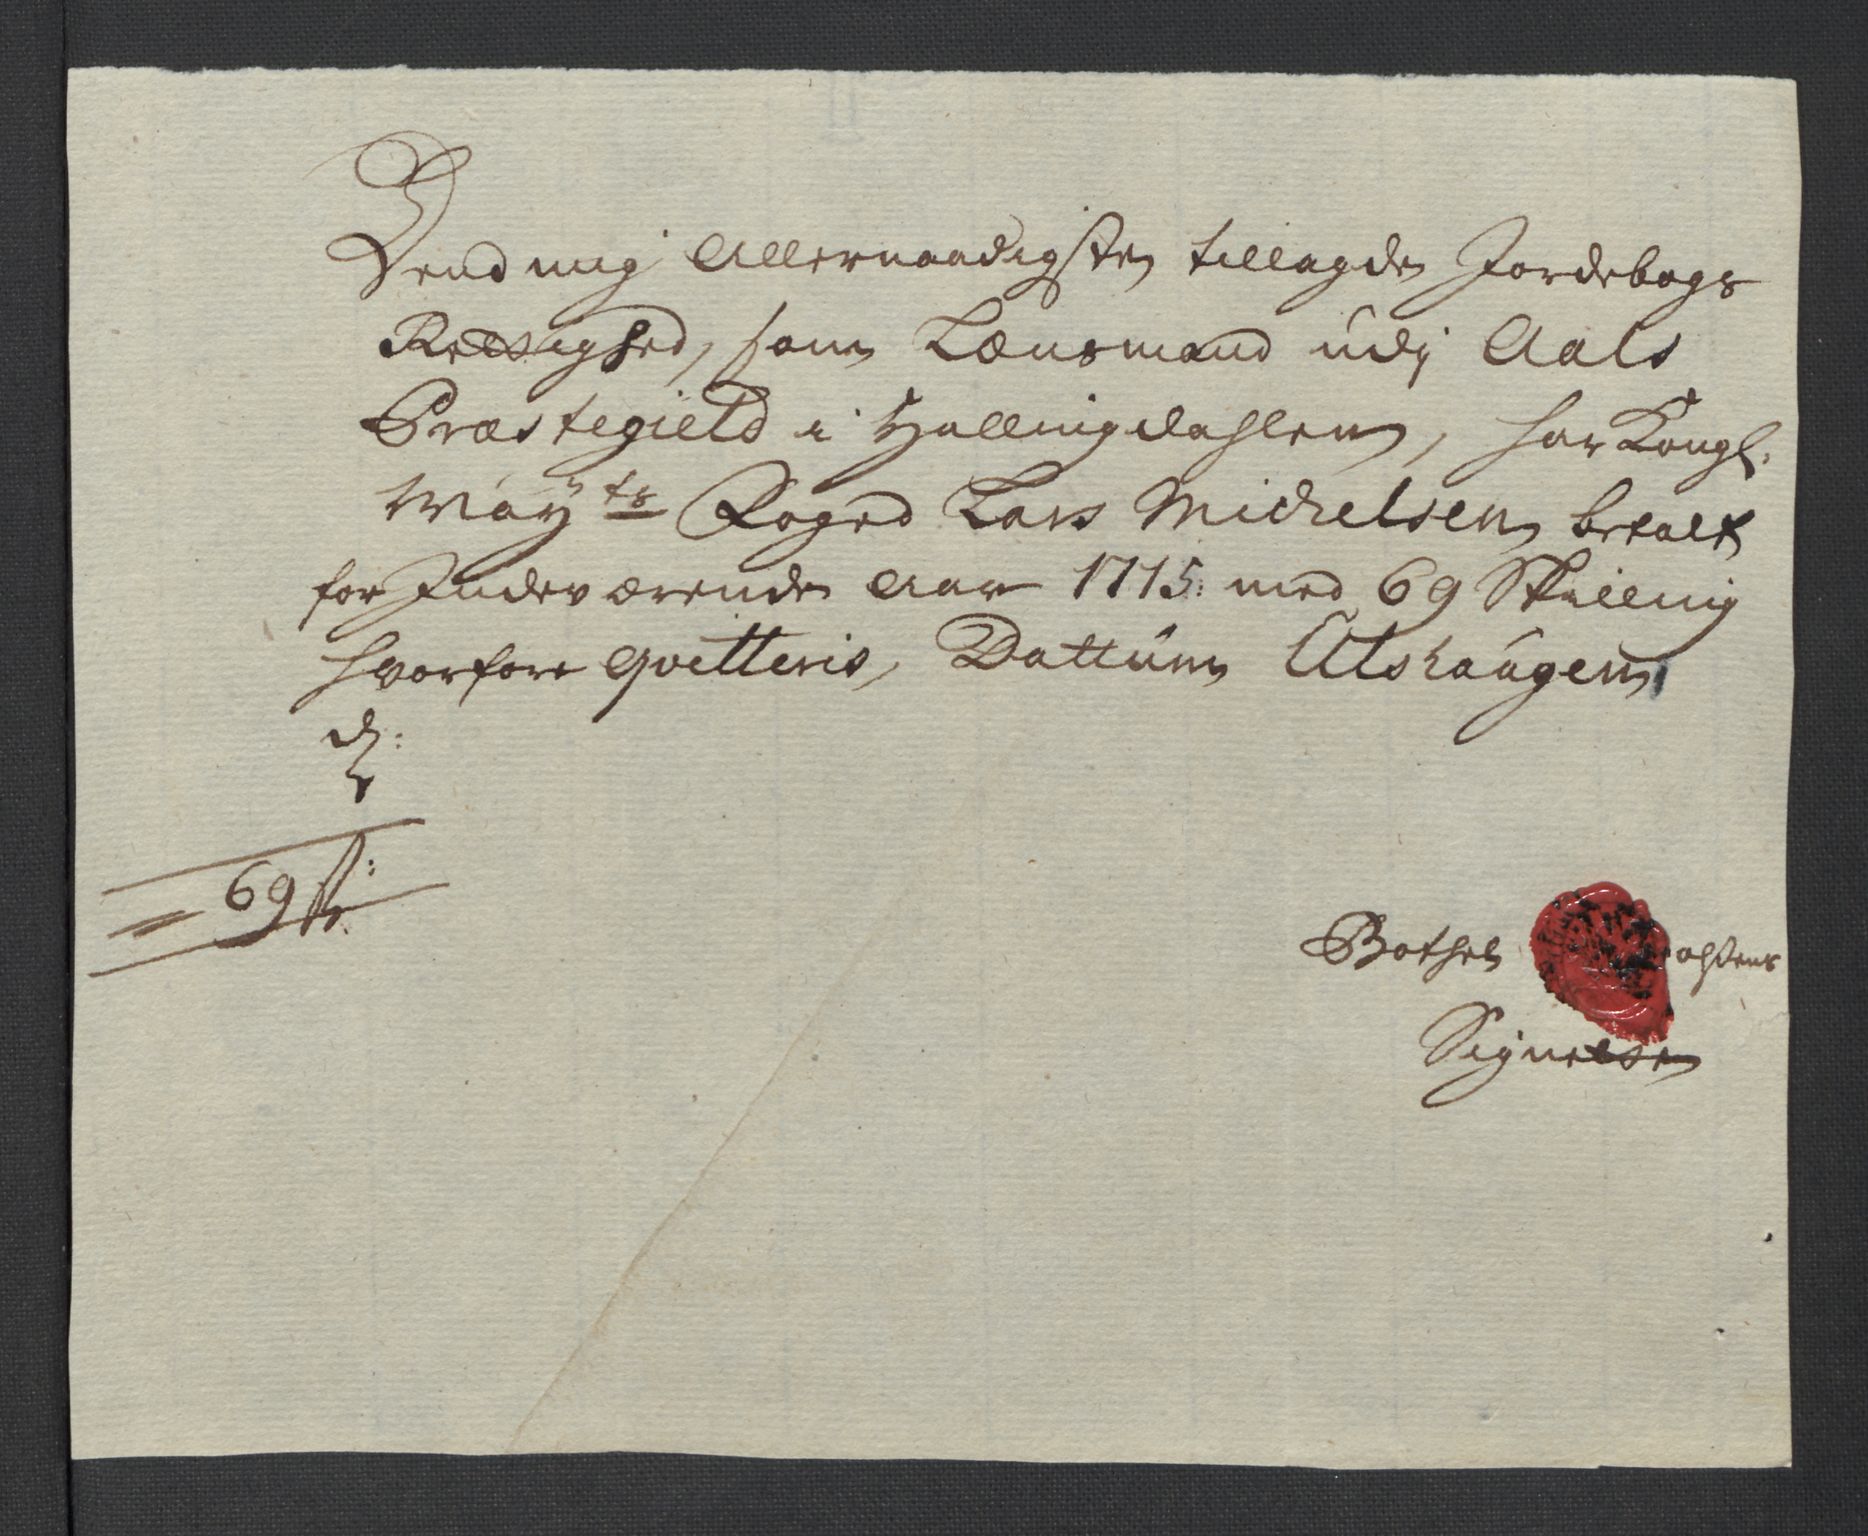 Dend mig Allernaadigsten tillagde Jordebogs
Rettighed, som Lænsmand udj Aals
Præstegield i Hallingdahlen, har Kongl.
Mayts Foged Lars Michelsen betalt
for Indeværende Aar 1715: med 69 Skilling
hvorfore qvitteris, Dattum
d:
69 s:
Bothel
Signete